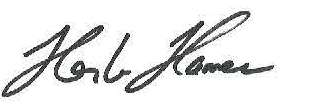 Herb Hames